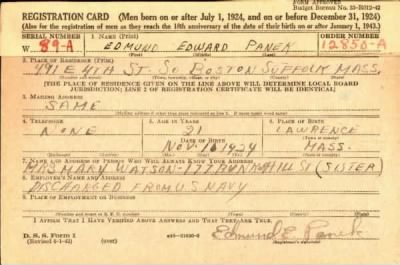 FORM APPROVED
Budget Bureau No. 33-R012-42
REGISTRATION CARD (Men born on or after July 1, 1924, and on or before December 31, 1924)
(Also for the registration of men as they reach the 18th anniversary of the date of their birth on or after January 1, 1943.)
SERIAL NUMBER
1. NAME (Print)
ORDER NUMBER
W 89-A
EDMUND EDWARD PANEK
12850-A
(First) (Middle) (Last)
2. PLACE OF RESIDENCE (Print)
791 E 4TH ST. SO BOSTON SUFFOLK MASS.
(Number and street) (Town, township, village, or city) (County) (State)
[THE PLACE OF RESIDENCE GIVEN ON THE LINE ABOVE WILL DETERMINE LOCAL BOARD
JURISDICTION; LINE 2 OF REGISTRATION CERTIFICATE WILL BE IDENTICAL]
3. MAILING ADDRESS
SAME
4. TELEPHONE
5. AGE IN YEARS
6. PLACE OF BIRTH
NONE
21
LAWRENCE
DATE OF BIRTH
NOV. 1924
MASS.
7. NAME AND ADDRESS OF PERSON WHO WILL ALWAYS KNOW YOUR ADDRESS
MRS MARY WATSON-177 HILL ST (SISTER
8. EMPLOYER'S NAME AND ADDRESS
DISCHARGED FROM U.S. NAVY
9. PLACE OF EMPLOYMENT OR BUSINESS
(Number and street or R. F. D. number) (Town) (County) (State)
I AFFIRM THAT I HAVE VERIFIED ABOVE ANSWERS AND THAT THEY ARE TRUE.
D. S. S. Form 1
(Revised 6-1-42) (over)
Edmund E. Panek
(Registrant's signature)